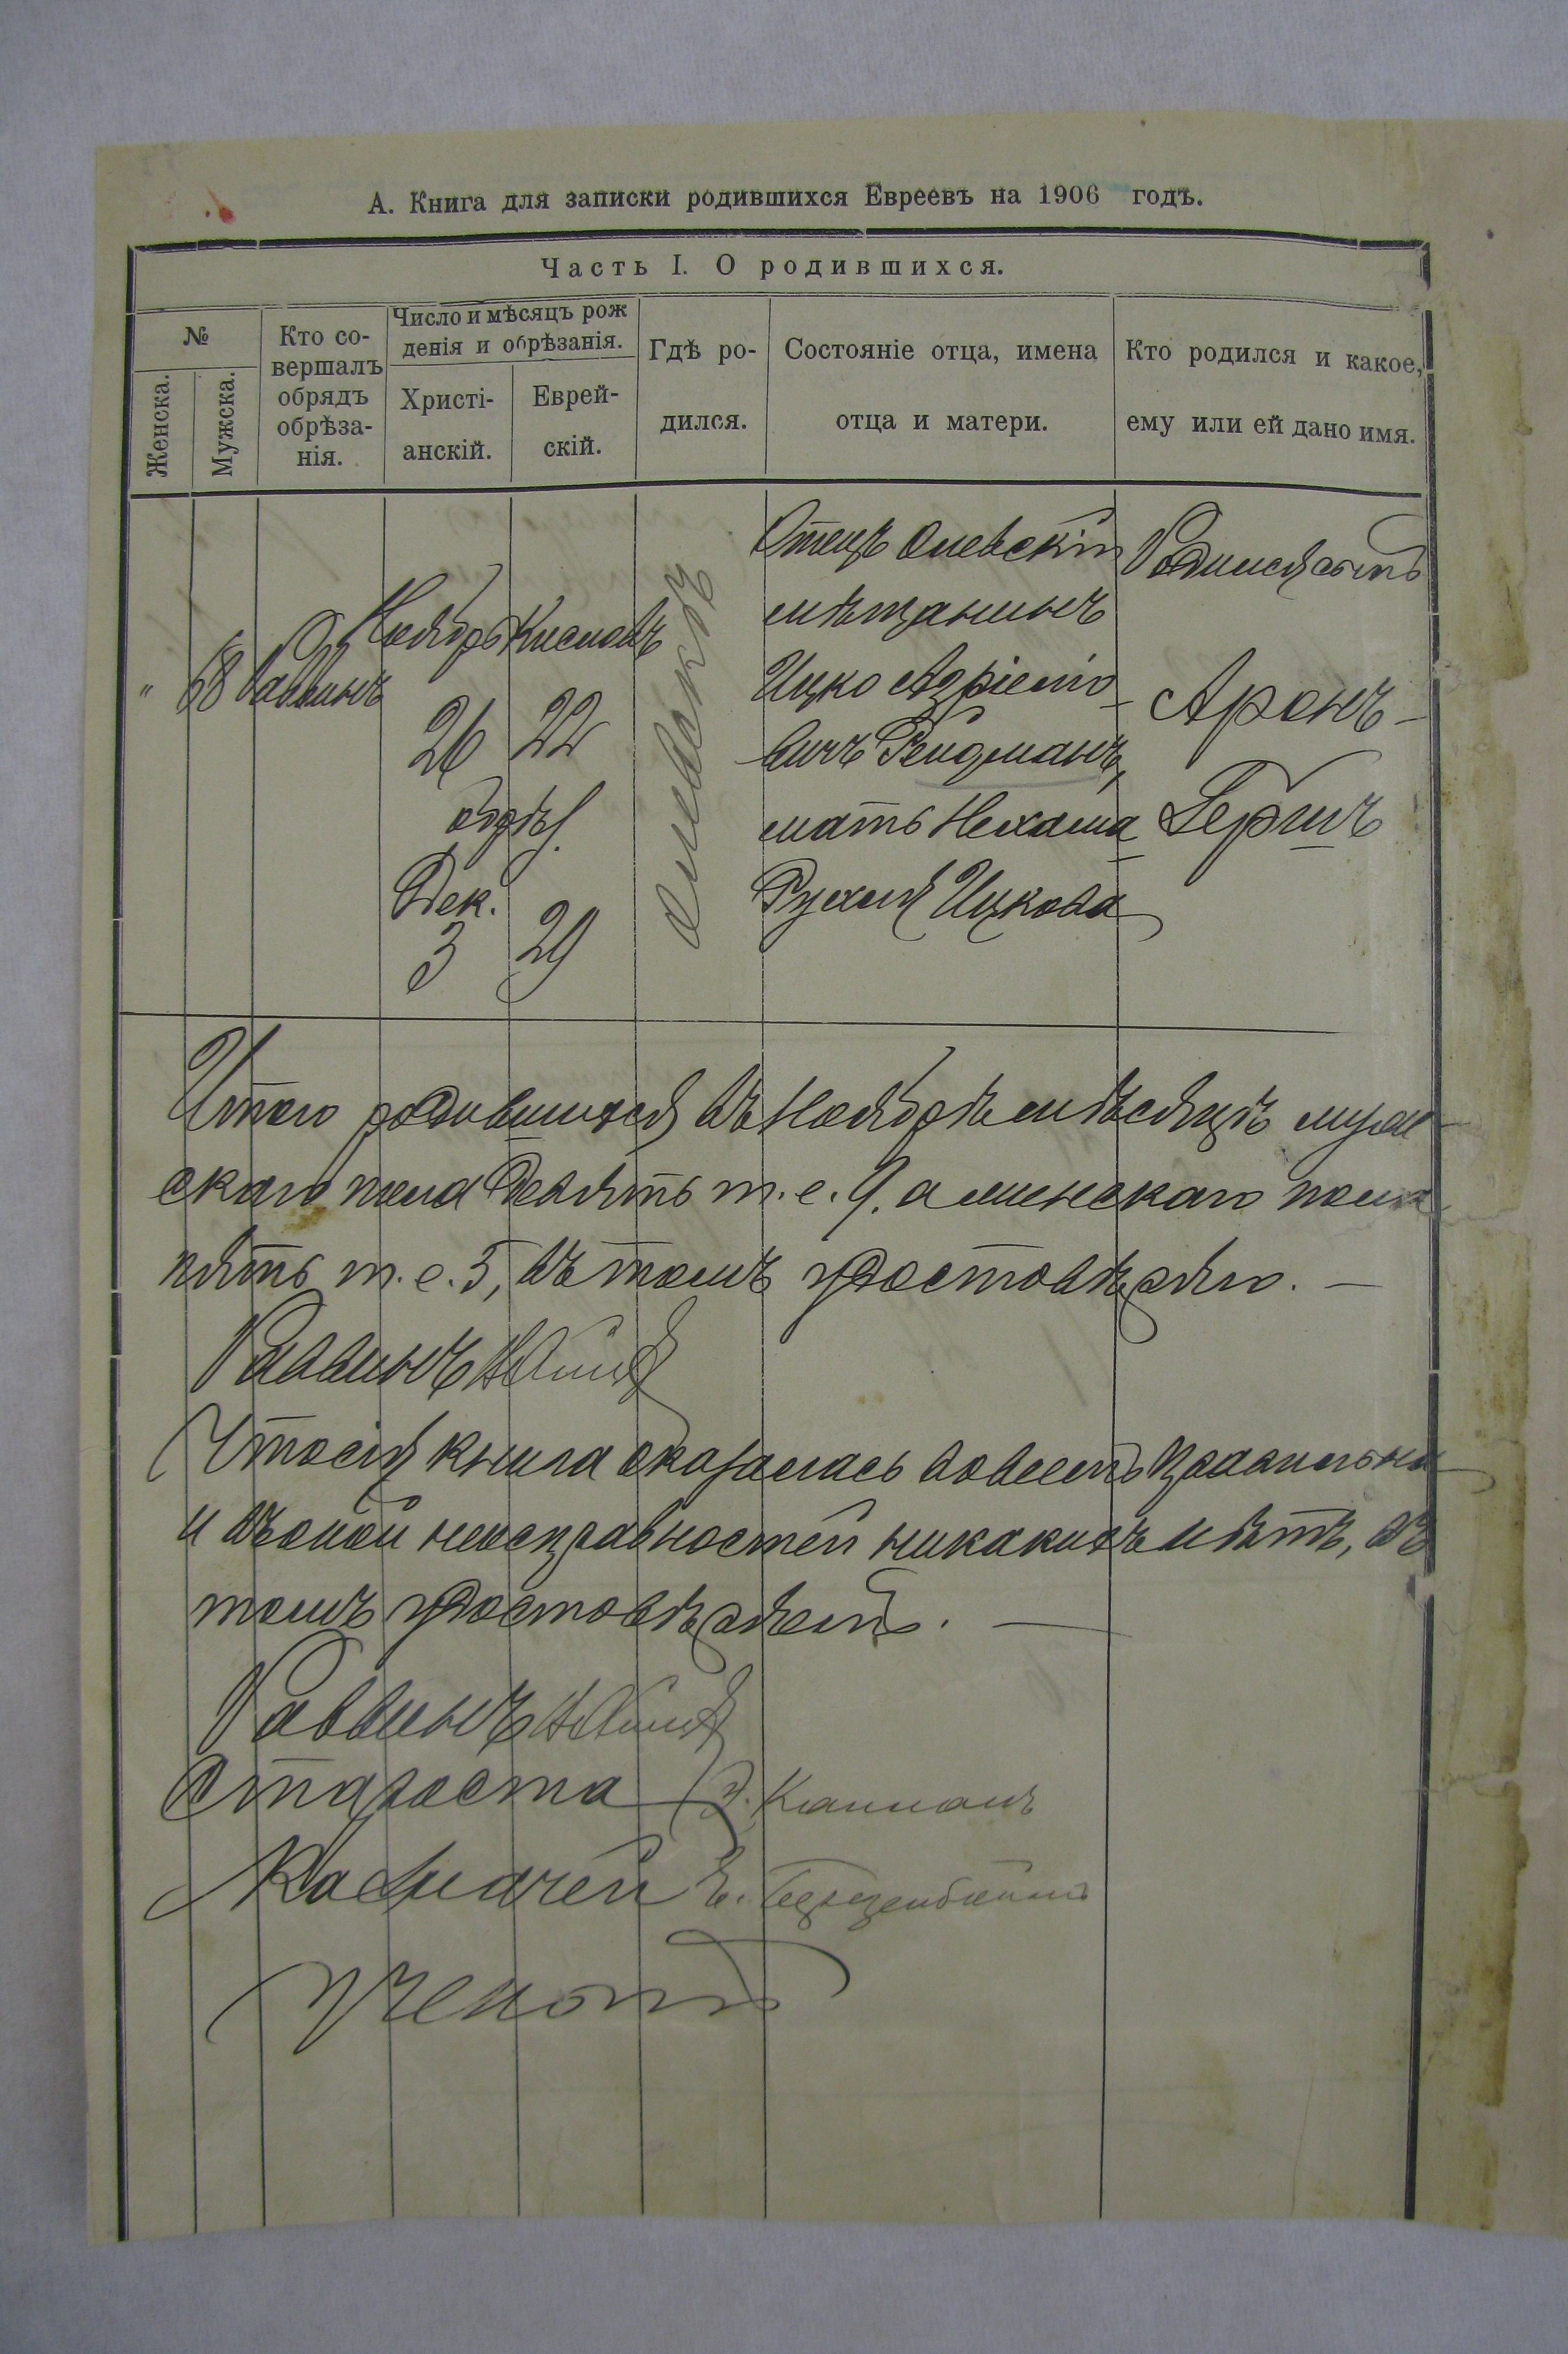 А. Книга для записки родившихся Евреевъ на 1906 годъ.
Часть I. О родившихся.
№
Женска.
Мужска.
Кто со-
вершалъ
обрядъ
обрѣза-
нія.
Число и мѣсяцъ рож
денія и обрѣзанія.
Христі-
анскій.
Еврей-
скій.
Гдѣ ро-
дился.
Состояніе отца, имена
отца и матери.
Кто родился и какое,
ему или ей дано имя.
"
68
Раввинъ
Ноябрь
26
обрѣз.
Дек.
3
Кислевъ
22
29
Олевскъ
Отецъ Олевскій
мѣщанинъ
Ицко Азріело-
вичъ
мать Нехама
Рухля Ицкова
Родился сынъ
Аронъ-
Гершъ
Итого родившихся въ Ноябрѣ мѣсяцѣ муж-
ского пола девять т. е. 9, а женскаго пола
пять т. е. 5, въ томъ удостовѣряю. —
Раввинъ
Что сія книга оказалась во всемъ правильна
и въ оной неисправностей никакихъ нѣтъ, въ
томъ удостовѣряемъ. —
Раввинъ
Староста
Казначей
Ученый